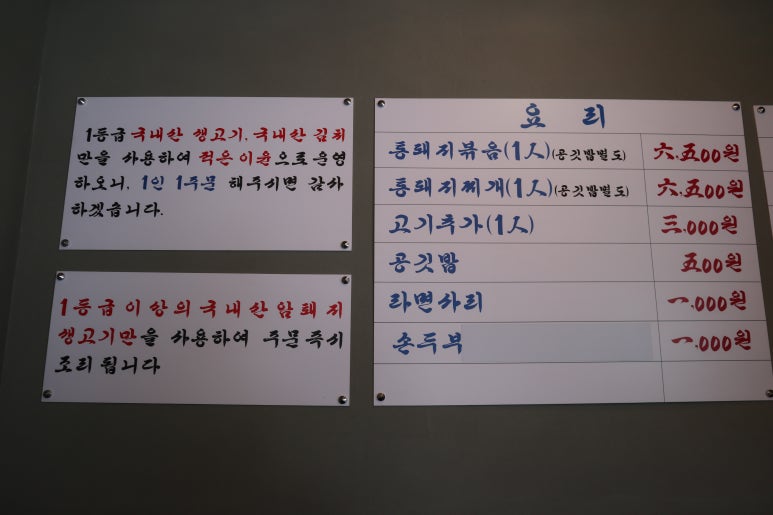 1등급 국내산 생고기, 국내산 김치
만을 사용하여 적은 이윤으로 운영
하오니, 1인 1주문 해주시면 감사
하겠습니다.
1등급 이상의 국내산 암퇘지
생고기만을 사용하여 주문즉시
조리 됩니다
요 리
통돼지볶음(1人)(공깃밥별도) 六.五00원
통돼지찌개(1人)(공깃밥별도) 六.五00원
고기추가(1人) 三.000원
공깃밥 五00원
라면사리 一.000원
손두부 一.000원